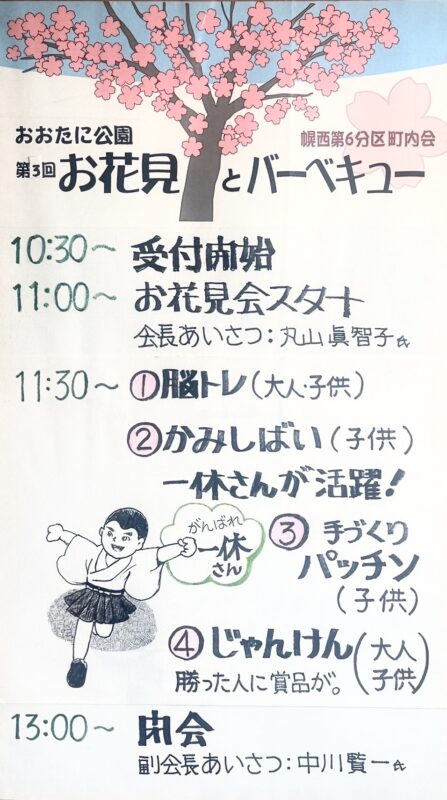 おおたに公園
幌西第6分区町内会
第3回 お花見とバーベキュー
10:30～ 受付開始
11:00～ お花見会スタート
会長あいさつ：丸山眞智子氏
11:30～ ①脳トレ（大人・子供）
②かみしばい（子供）
一休さんが活躍！
がんばれ
一休
さん
③ 手づくり
パッチン
（子供）
④じゃんけん（大人
子供）
勝った人に賞品が。
13:00～ 閉会
副会長あいさつ：中川賢一氏